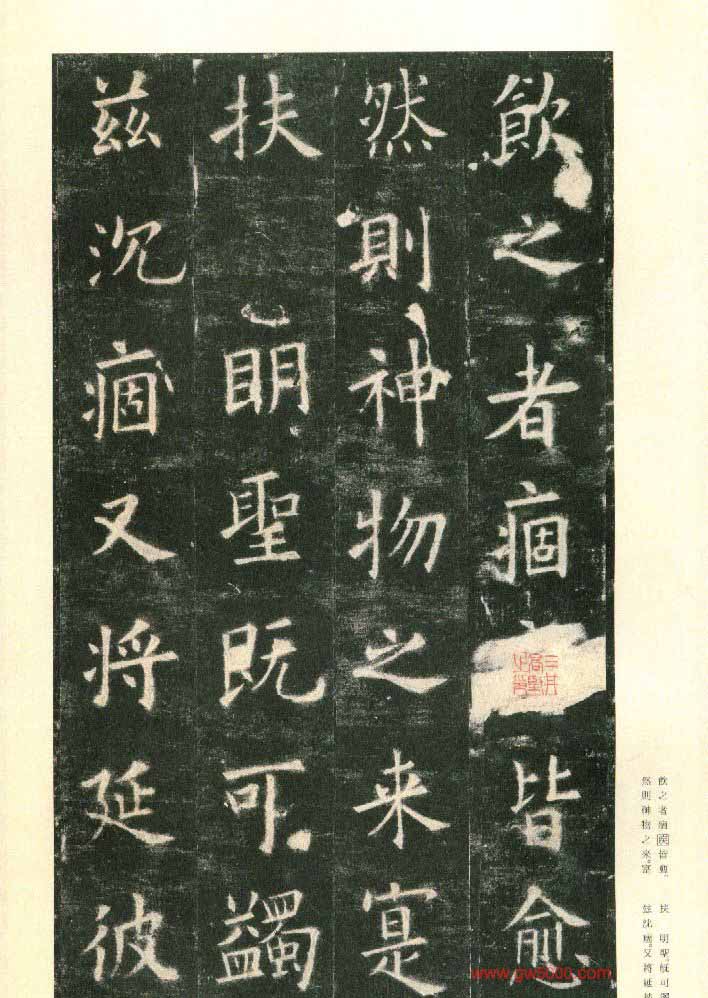 飲之者痼皆愈
然則神物之来寔
扶明聖既可蠲
兹沉痼又将延彼
飲之者痼疾皆愈。
然則神物之來。寔
扶 明聖。既可
兹沈痼。又將延
www.gw5000.com